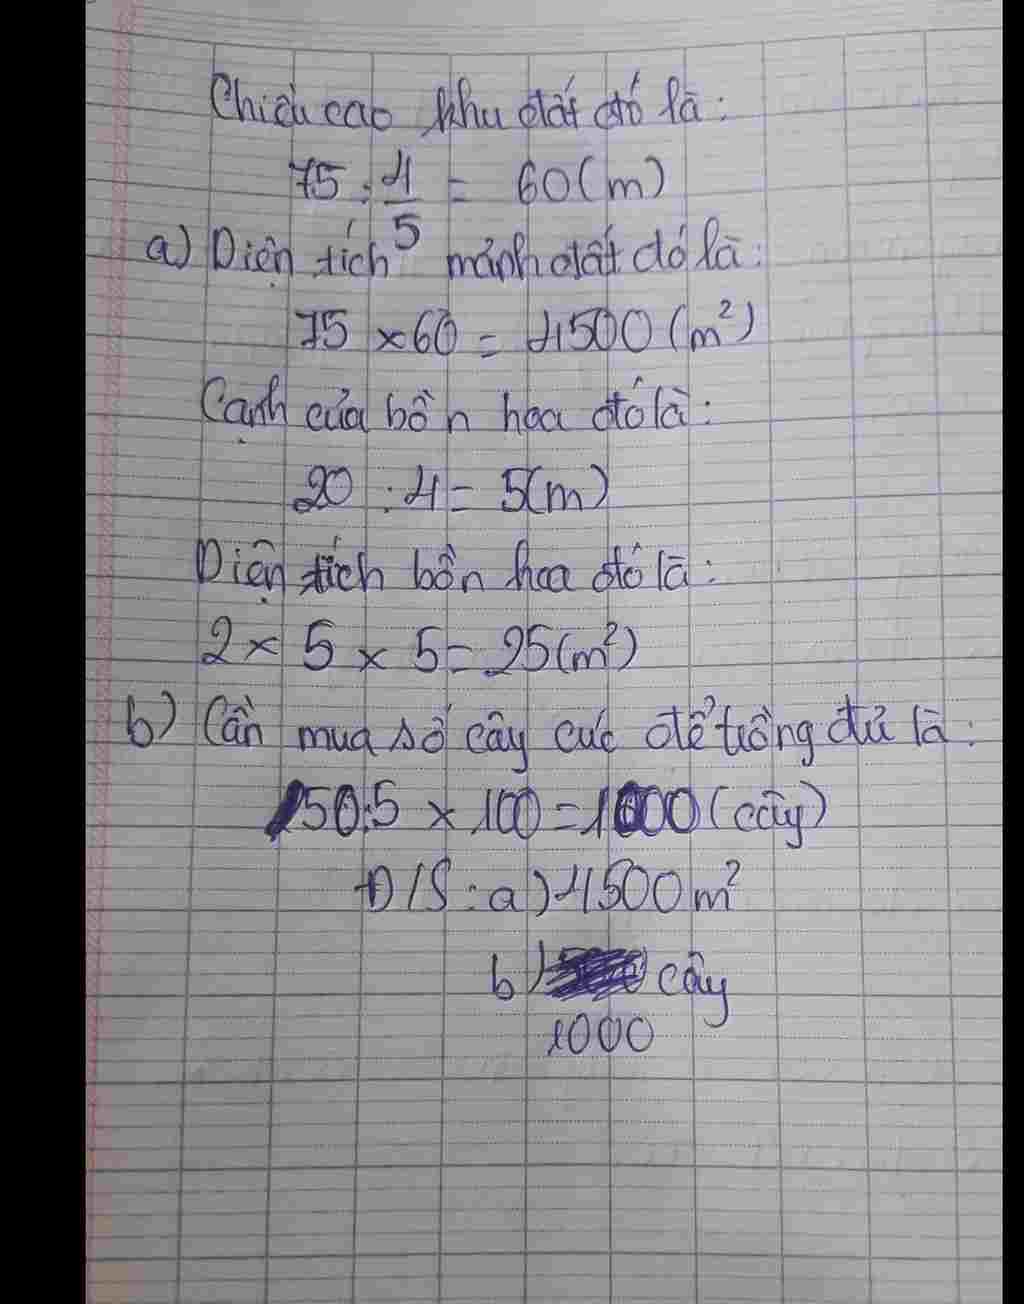 Chiều cao khu đất đó là:
75 : 4/5 = 60 (m)
a) Diện tích mảnh đất đó là:
75 × 60 = 4500 (m²)
Cạnh của bồn hoa đó là:
20 : 4 = 5 (m)
Diện tích bồn hoa đó là:
2 × 5 × 5 = 25 (m²)
b) Cần mua số cây cúc để trồng đủ là:
50:5 × 100 = 1000 (cây)
Đ/S: a) 4500 m²
b) cây
1000